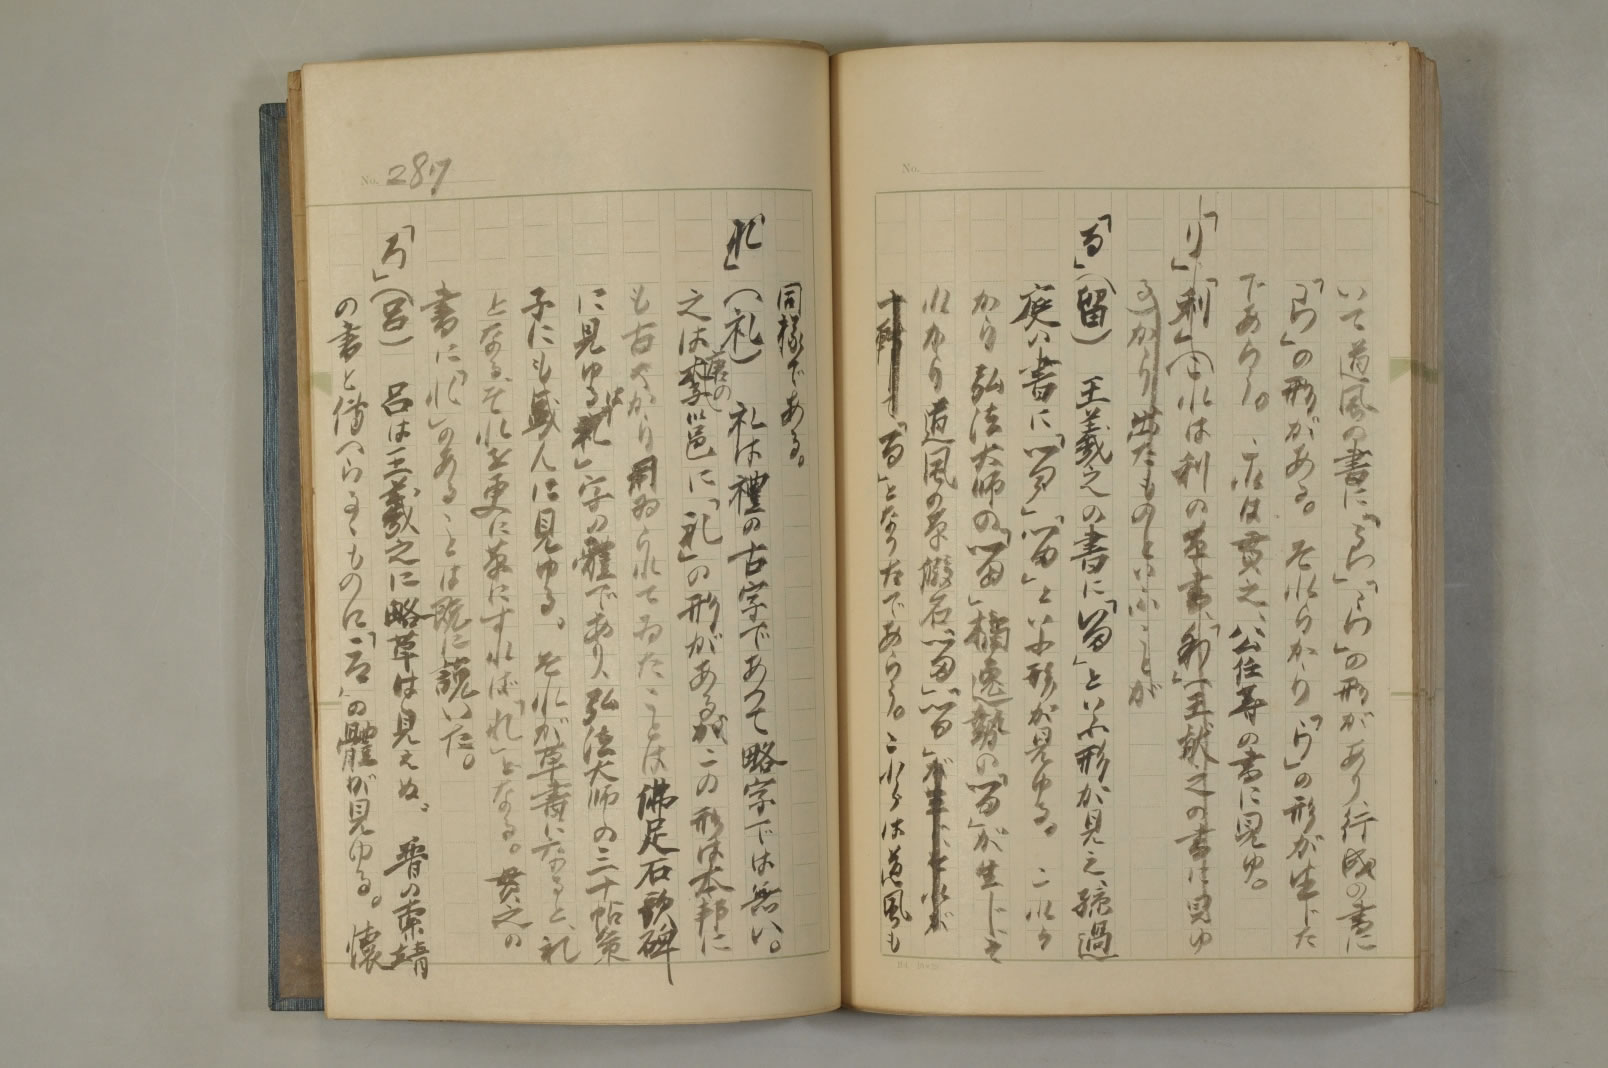 No.
いて道風の書に「らし」「らし」の形があり行成の書に
「らし」の形がある。それらから「ら」の形が生じた
であらう。これは貫之、公任等の書に見ゆ。
「り」「利」(これは利の草書「利」(王献之の書に見ゆ
る)から出たものといふことが
「る」(留) 王羲之の書に「留」といふ形が見え、孫過
庭の書に「留」「留」といふ形が見ゆる。これら
から弘法大師の「留」橘逸勢の「留」が生じそ
れから道風の草假名「留」「留」が
「る」となつたであらう。これらは道風も
No. 287
同様である。
「れ」(礼) 礼は禮の古字であつて略字では無い。
之は唐の李邕に「礼」の形があるが、この形は本邦に
も古くから用ゐられてゐたことは佛足石歌碑
に見ゆる「礼」字の體であり、弘法大師の三十帖策
子にも盛んに見ゆる。それが草書になると、礼
となる。それを更に草にすれば「れ」となる。貫之の
書に「れ」のあることは既に説いた。
「ろ」(呂) 呂は王羲之に略草は見えぬ。晋の索靖
の書と傳へらるゝものに「呂」の體が見ゆる。懐